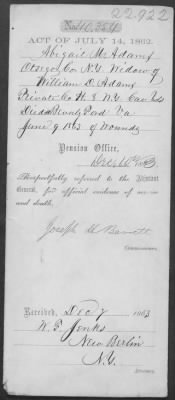 22.922
ACT OF JULY 14, 1862.
Abigail M. Adams
Otsego Co N.Y. Widow of
William D. Adams
Private Co H 2 N.Y. Cav
Died Brandy Ford Va
June 9 1863 of Wounds
Pension Office,
Respectfully referred to the Adjutant
General, for official evidence of service
and death.
Joseph H Barrett
Commissioner.
Received, Dec 7 1863
W. F. Jenks
New Berlin
N.Y.
Attorney.